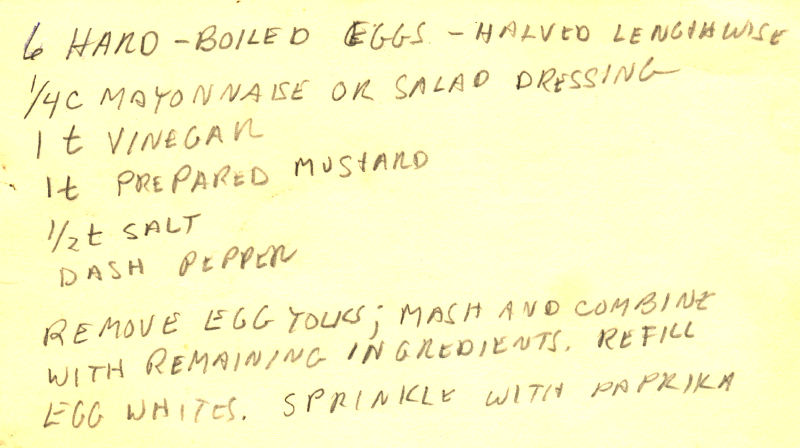 6 HARD-BOILED EGGS - HALVED LENGTHWISE
1/4C MAYONNAISE OR SALAD DRESSING
1 t VINEGAR
1t PREPARED MUSTARD
1/2t SALT
DASH PEPPER
REMOVE EGG YOLKS; MASH AND COMBINE
WITH REMAINING INGREDIENTS. REFILL
EGG WHITES. SPRINKLE WITH PAPRIKA